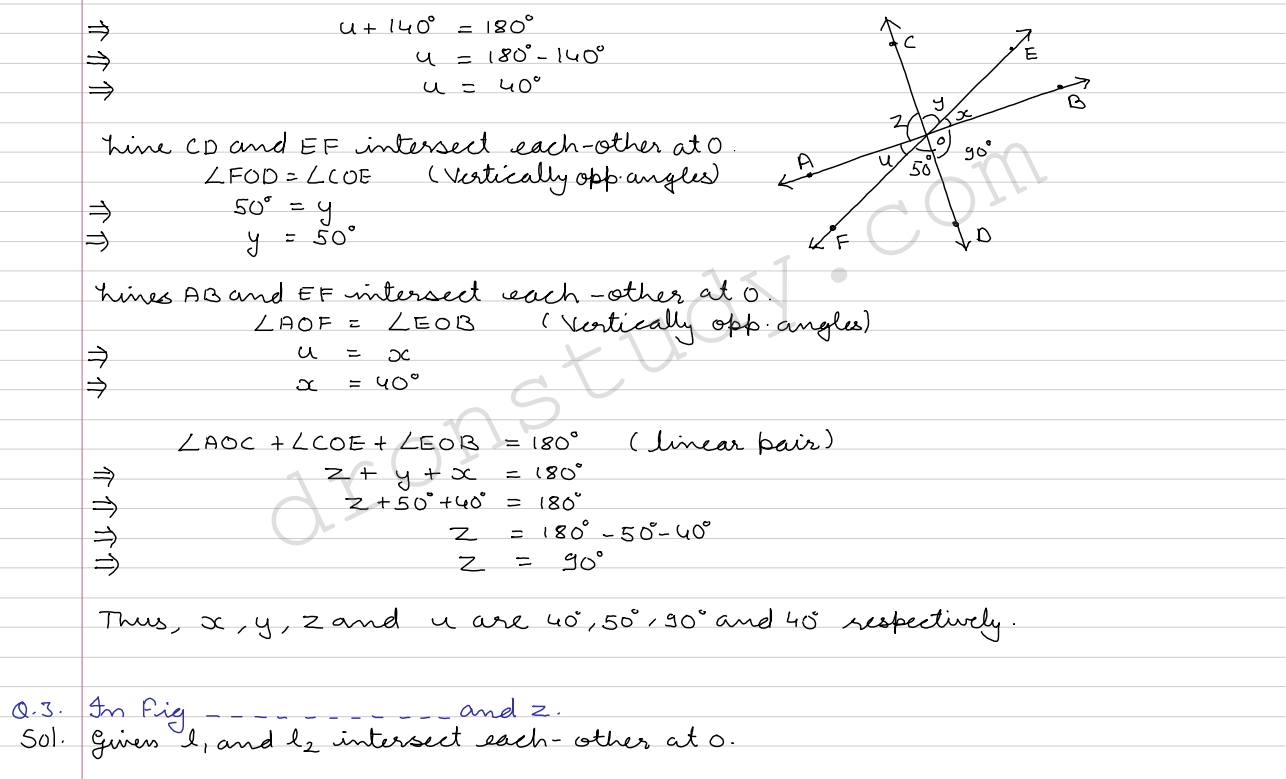 ⇒ u + 140° = 180°
⇒ u = 180° - 140°
⇒ u = 40°
Line CD and EF intersect each-other at O.
∠FOD = ∠COE (Vertically opp. angles)
⇒ 50° = y
⇒ y = 50°
Lines AB and EF intersect each-other at O.
∠AOF = ∠EOB (Vertically opp. angles)
⇒ u = x
⇒ x = 40°
∠AOC + ∠COE + ∠EOB = 180° (linear pair)
⇒ z + y + x = 180°
⇒ z + 50° + 40° = 180°
⇒ z = 180° - 50° - 40°
⇒ z = 90°
Thus, x, y, z and u are 40°, 50°, 90° and 40° respectively.
Q.3. In Fig ----------- and z.
Sol. Given l₁ and l₂ intersect each-other at O.
C
E
B
y
x
z
O
90°
A
u
50°
F
D
dronstudy.com